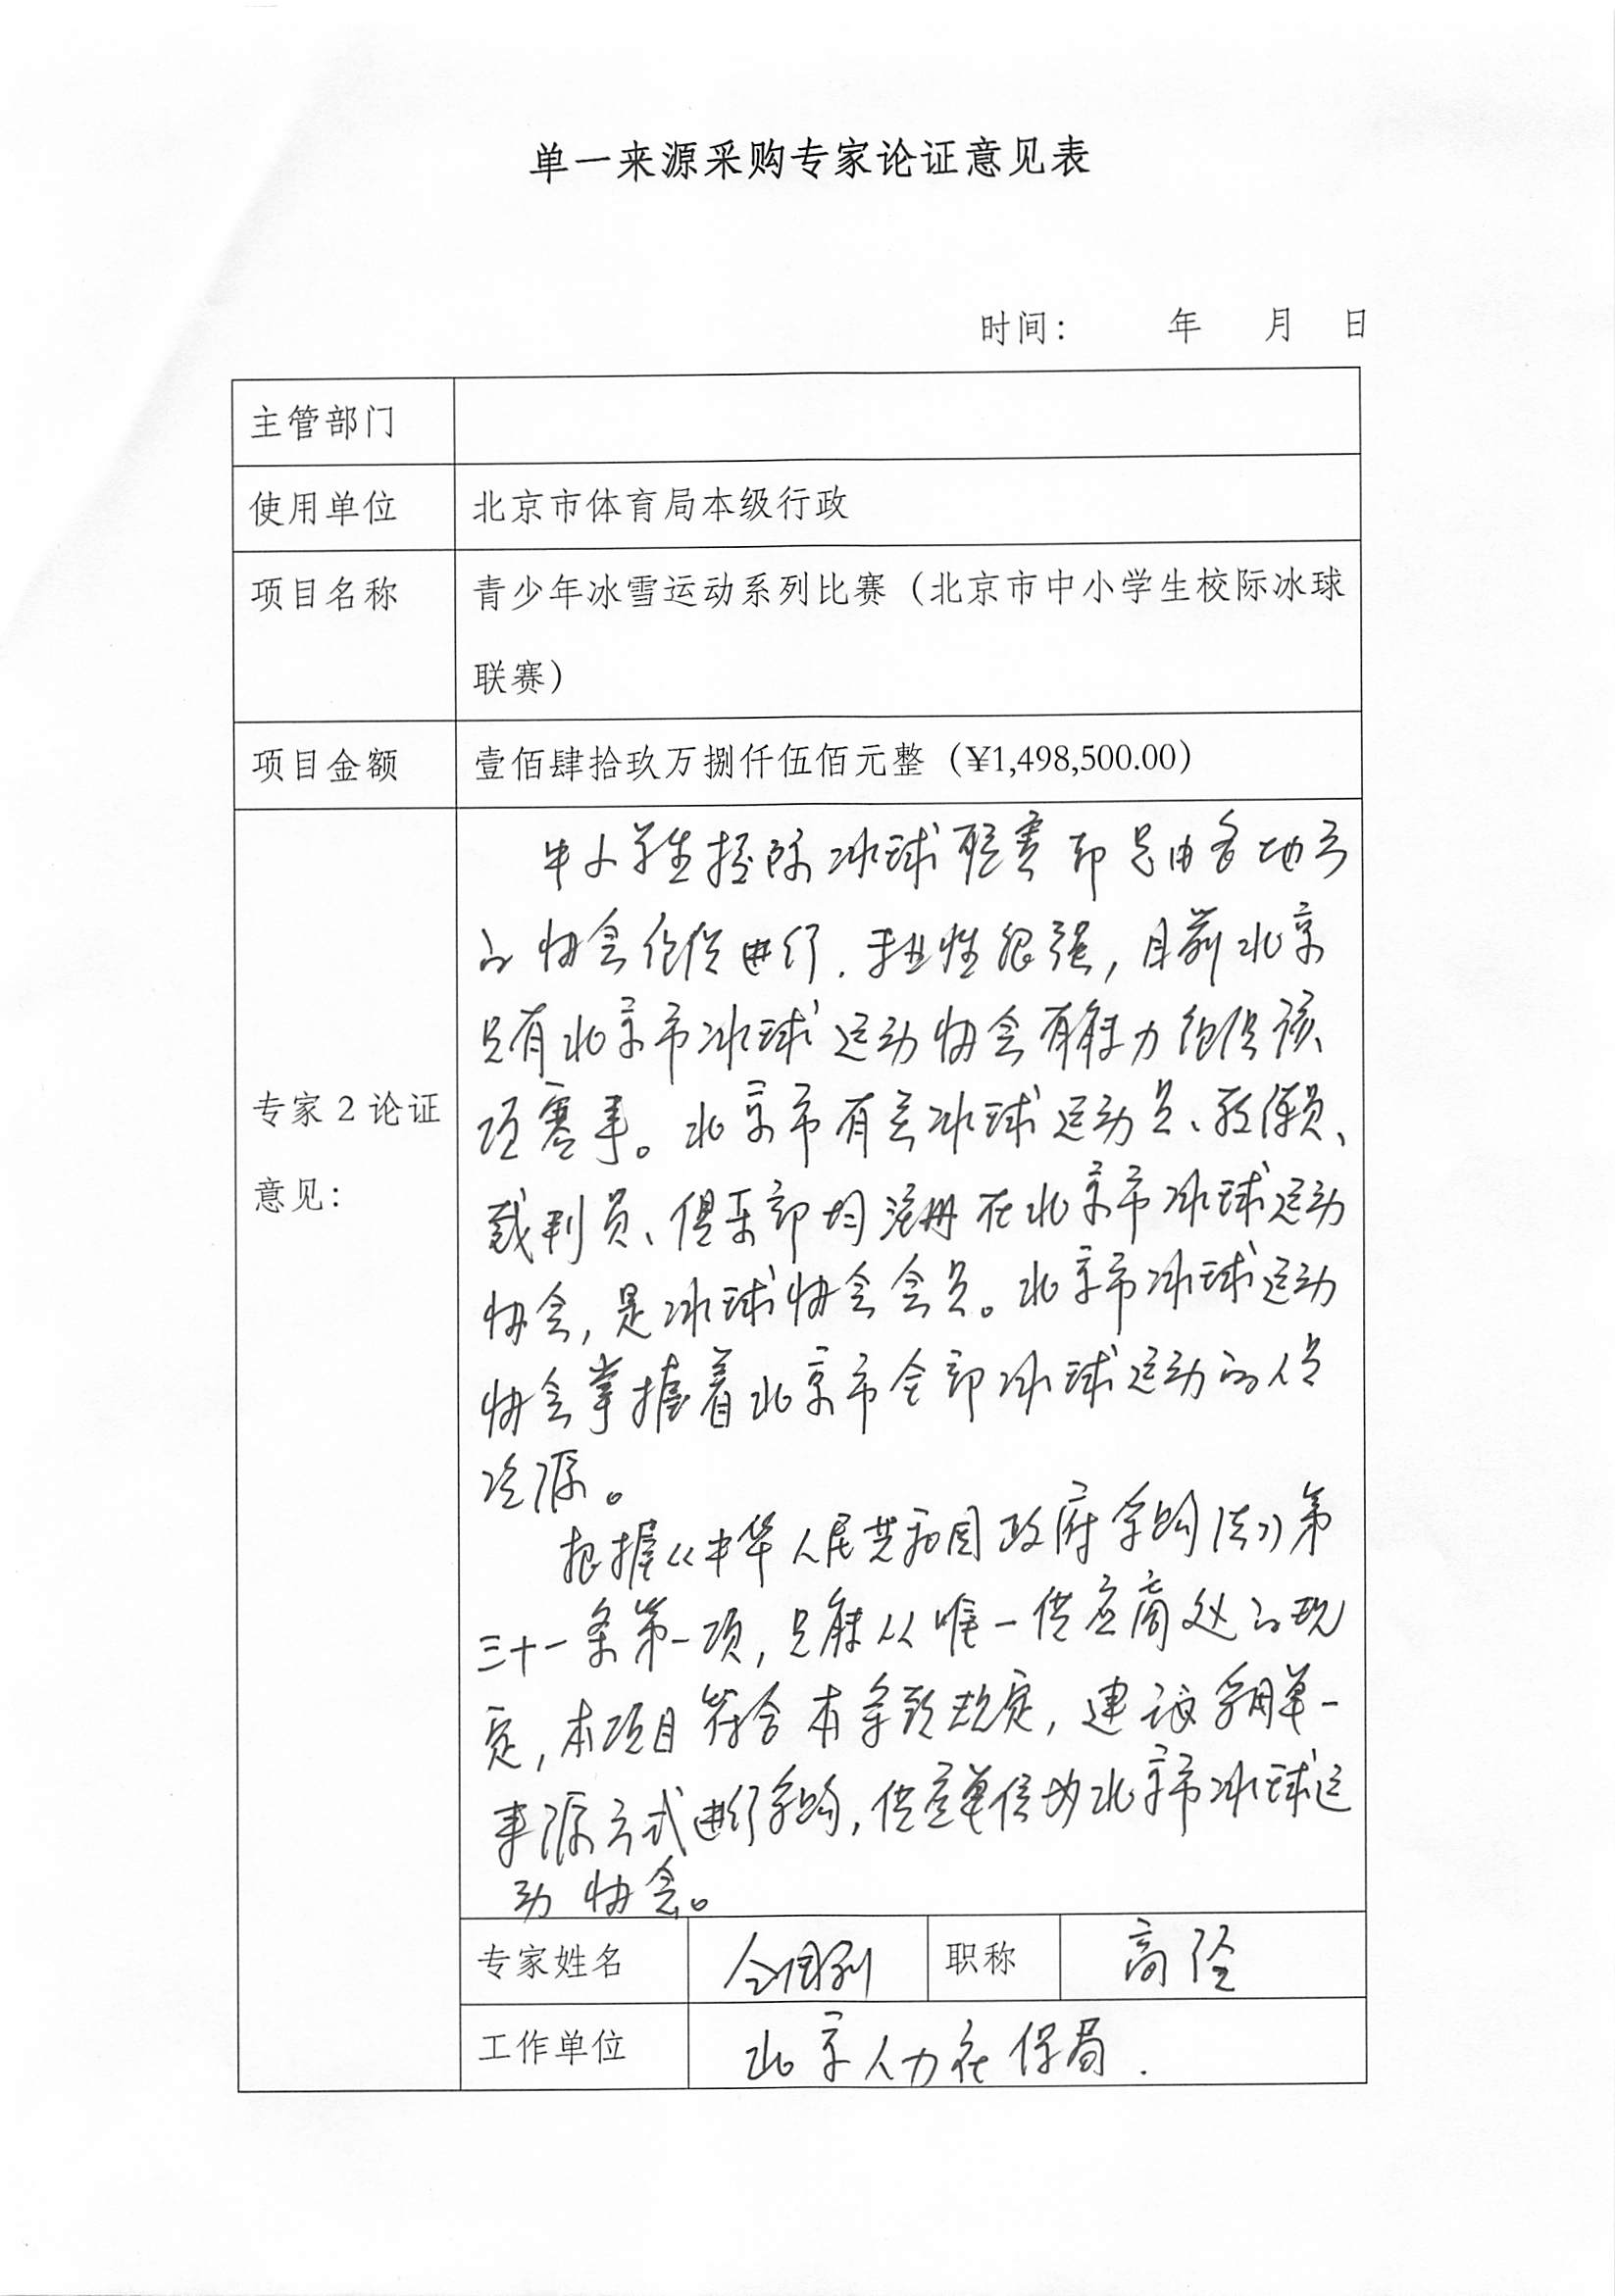 单一来源采购专家论证意见表
时间： 年 月 日
主管部门
使用单位 北京市体育局本级行政
项目名称 青少年冰雪运动系列比赛（北京市中小学生校际冰球
联赛）
项目金额 壹佰肆拾玖万捌仟伍佰元整（¥1,498,500.00）
专家2论证
意见：
中小学生校际冰球联赛都是由各地方
的协会组织进行，专业性很强，目前北京
只有北京市冰球运动协会有能力组织该
项赛事。北京市有关冰球运动员、教练员、
裁判员、俱乐部均注册在北京市冰球运动
协会，是冰球协会会员。北京市冰球运动
协会掌握着北京市全部冰球运动的人员
资源。
根据《中华人民共和国政府采购法》第
三十一条第一项，只能从唯一供应商处的规
定，本项目符合本条款规定，建议采用单一
来源方式进行采购，供应单位为北京市冰球运
动协会。
专家姓名 职称 高经
工作单位 北京人力社保局.